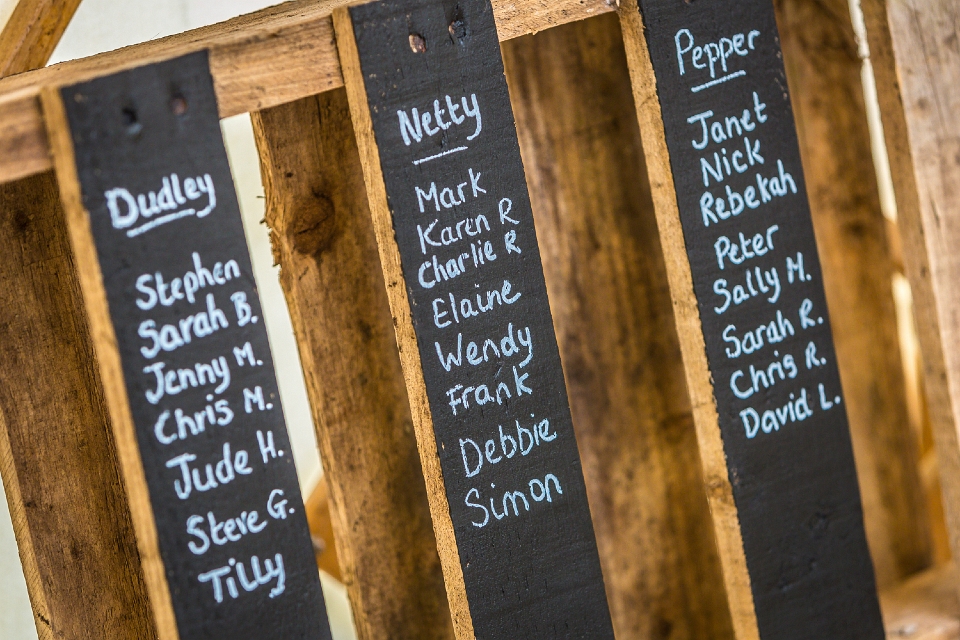 Dudley
Stephen
Sarah B.
Jenny M.
Chris M.
Jude H.
Steve G.
Tilly
Netty
Mark
Karen R
Charlie R
Elaine
Wendy
Frank
Debbie
Simon
Pepper
Janet
Nick
Rebekah
Peter
Sally M.
Sarah R.
Chris R.
David L.